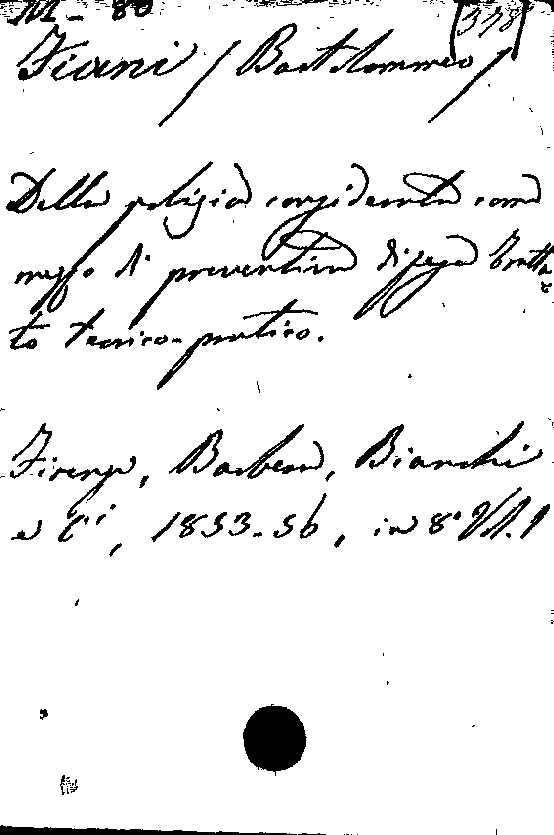 M - 80 (378)
Fiani / Bartolommeo /
Della polizia considerata come
mezzo di preventiva difesa Tratta
to teorico-pratico.
Firenze, Barbera, Bianchi
e Ci, 1853-56, in 8° Vol. 1